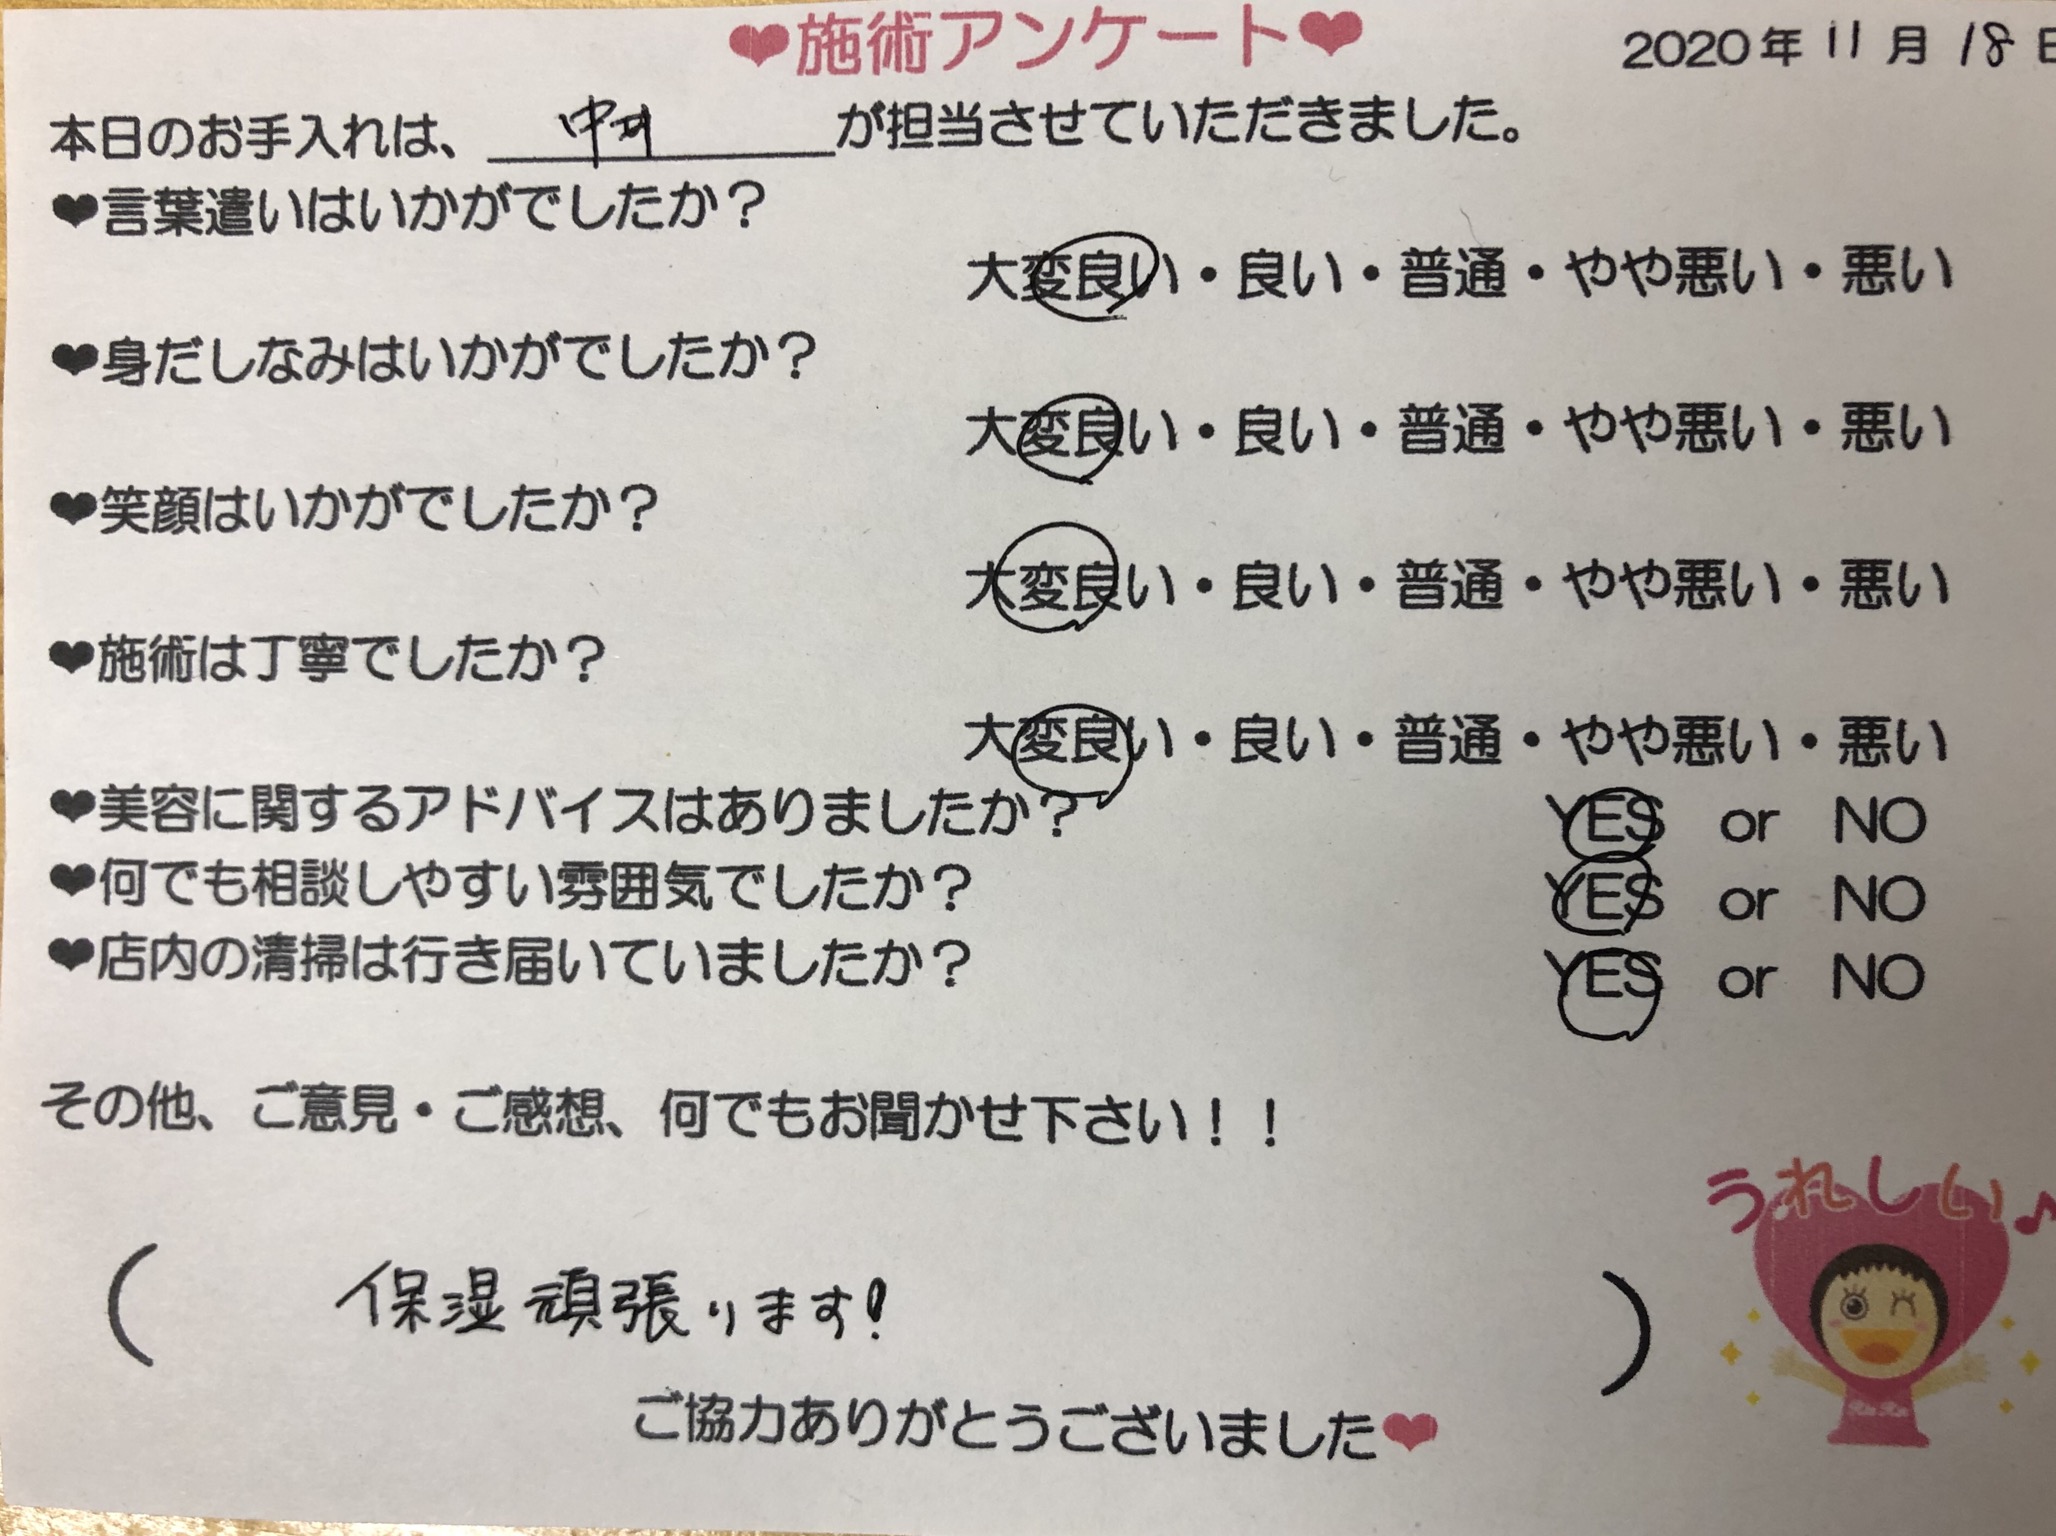 ❤施術アンケート❤
2020年 11月 18日
本日のお手入れは、 が担当させていただきました。
❤言葉遣いはいかがでしたか？
大変良い・良い・普通・やや悪い・悪い
❤身だしなみはいかがでしたか？
大変良い・良い・普通・やや悪い・悪い
❤笑顔はいかがでしたか？
大変良い・良い・普通・やや悪い・悪い
❤施術は丁寧でしたか？
大変良い・良い・普通・やや悪い・悪い
❤美容に関するアドバイスはありましたか？ YES or NO
❤何でも相談しやすい雰囲気でしたか？ YES or NO
❤店内の清掃は行き届いていましたか？ YES or NO
その他、ご意見・ご感想、何でもお聞かせ下さい！！
うれしい♪
( 保湿頑張ります! )
ご協力ありがとうございました❤